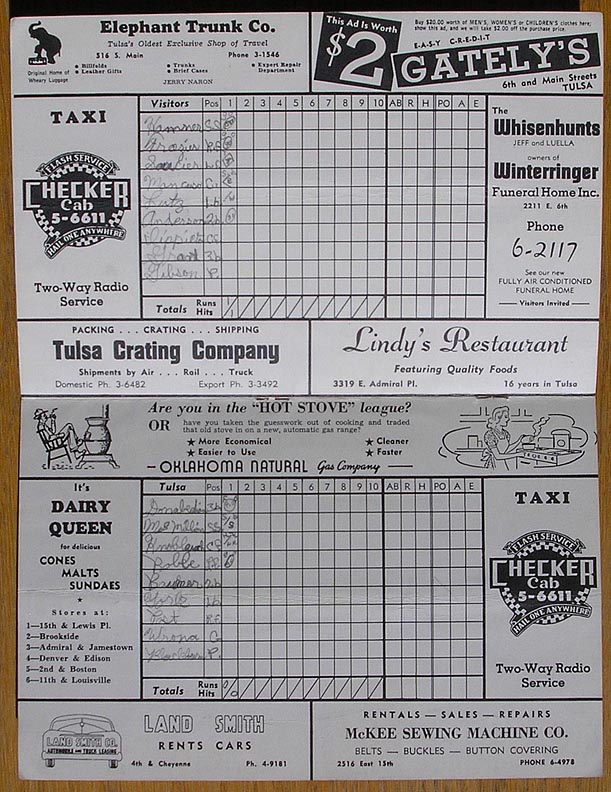 Elephant Trunk Co.
Tulsa's Oldest Exclusive Shop of Travel
516 S. Main Phone 3-1546
Original Home of
Wheary Luggage.
• Billfolds
• Leather Gifts
• Trunks
• Brief Cases
• Expert Repair
Department
JERRY NARON
This Ad Is Worth
$2
Buy $20.00 worth of MEN'S, WOMEN'S or CHILDREN'S clothes here;
show this ad, and we will take $2.00 off the purchase price.
E-A-S-Y C-R-E-D-I-T
GATELY'S
6th and Main Streets
TULSA
TAXI
FLASH SERVICE
CHECKER
Cab
5-6611
HAIL ONE ANYWHERE
Two-Way Radio
Service
Visitors Pos 1 2 3 4 5 6 7 8 9 10 AB R H PO A E
Hammer SS
Frazier
Mancuso
Lutz 1b
Anderson 2b
Grant 3b
Gibson P.
Totals Runs
Hits
The
Whisenhunts
JEFF and LUELLA
owners of
Winterringer
Funeral Home Inc.
2211 E. 6th
Phone
6-2117
See our new
FULLY AIR CONDITIONED
FUNERAL HOME
Visitors Invited
PACKING . . . CRATING . . . SHIPPING
Tulsa Crating Company
Shipments by Air . . . Rail . . . Truck
Domestic Ph. 3-6482 Export Ph. 3-3492
Lindy's Restaurant
Featuring Quality Foods
3319 E. Admiral Pl. 16 years in Tulsa
Are you in the "HOT STOVE" league?
OR have you taken the guesswork out of cooking and traded
that old stove in on a new, automatic gas range?
★ More Economical ★ Cleaner
★ Easier to Use ★ Faster
— OKLAHOMA NATURAL Gas Company —
It's
DAIRY
QUEEN
for delicious
CONES
MALTS
SUNDAES
★
Stores at:
1—15th & Lewis Pl.
2—Brookside
3—Admiral & Jamestown
4—Denver & Edison
5—2nd & Boston
6—11th & Louisville
Tulsa Pos 1 2 3 4 5 6 7 8 9 10 AB R H PO A E
3b
SS
Knoblauch CF
Wrona C
P.
Totals Runs
Hits
TAXI
FLASH SERVICE
CHECKER
Cab
5-6611
HAIL ONE ANYWHERE
Two-Way Radio
Service
LAND SMITH CO.
AUTOMOBILE AND TRUCK LEASING
LAND SMITH
RENTS CARS
4th & Cheyenne Ph. 4-9181
RENTALS — SALES — REPAIRS
McKEE SEWING MACHINE CO.
BELTS — BUCKLES — BUTTON COVERING
2516 East 15th PHONE 6-4978